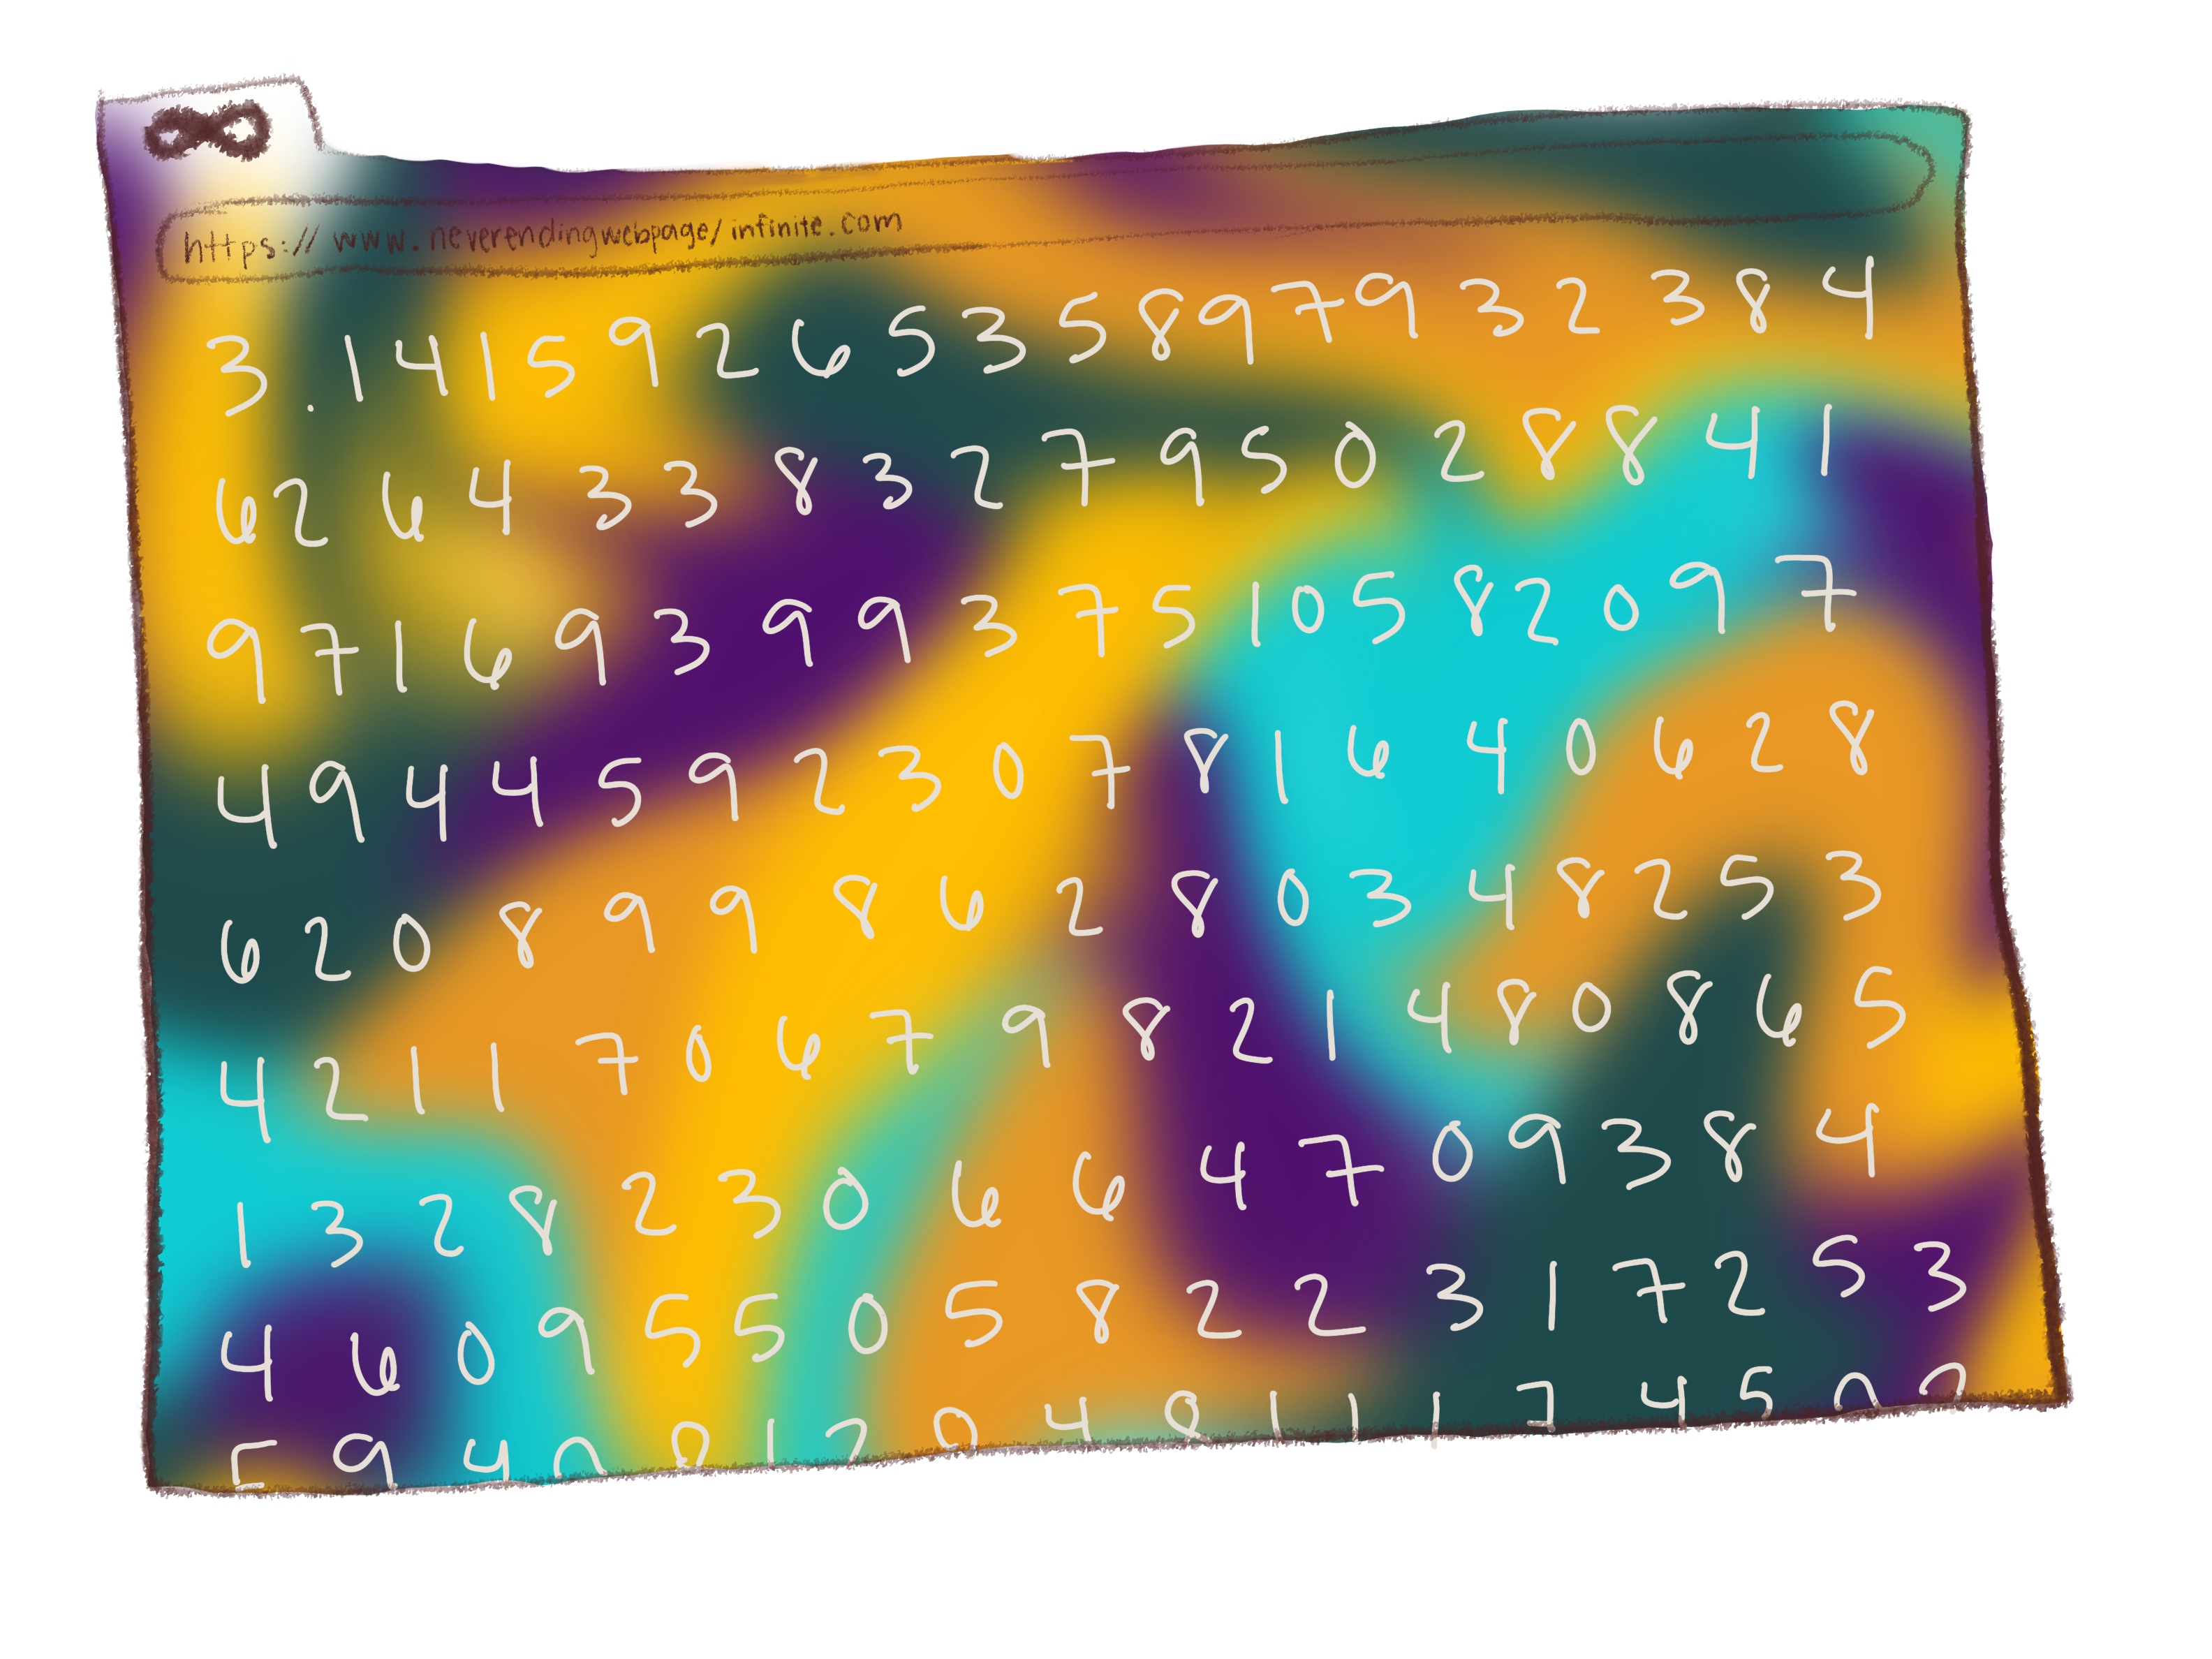 ∞
https://www.neverendingwebpage/infinite.com
3.1415926535897932384
626433832795028841
9716939937510582097
494459230781640628
62089986280348253
421170679821480865
1328230664709384
46095505822317253
594081284811174502